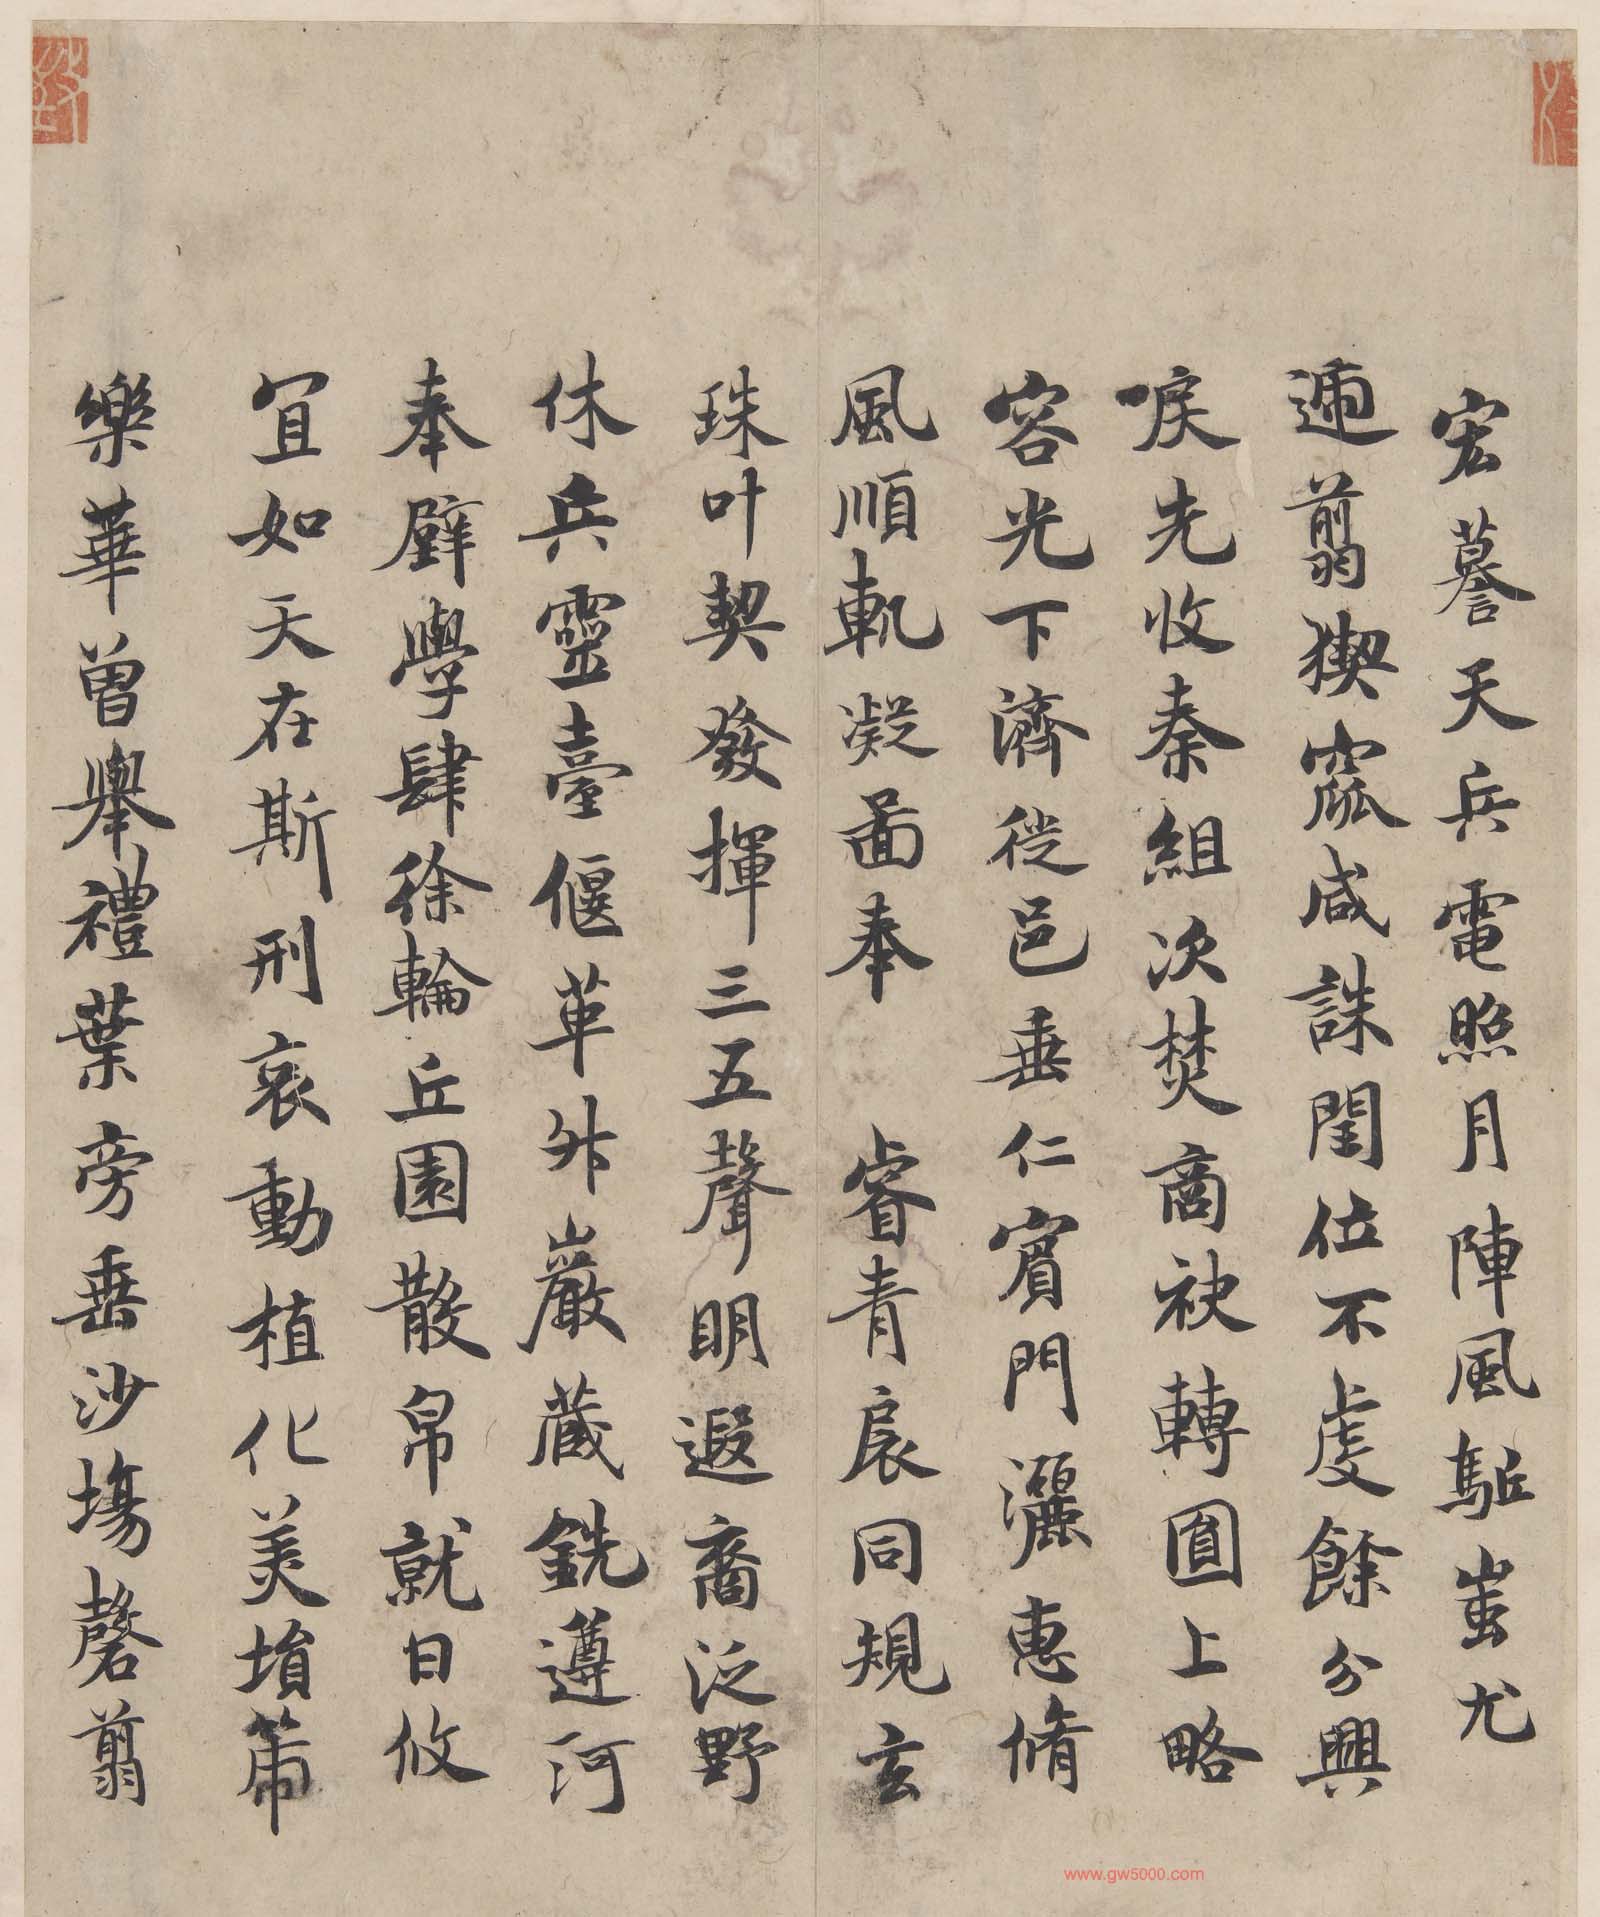 宏謩天兵電照月陣風駈蚩尤
遄翦猰窳咸誅閏位不虔餘分興
唳先收秦組次焚商袂轉圓上略
容光下濟徙邑垂仁賓門灑惠脩
風順軌凝啚奉睿青扆同規玄
珠叶契發揮三五聲明遐裔泛野
休兵靈臺偃革舛巖蔵銑遵河
奉璧學肆徐輪丘園散帛就日攸
冝如天在斯刑哀動植化美堉
樂華曽舉禮葉旁垂沙塲磬翦
www.gw5000.com